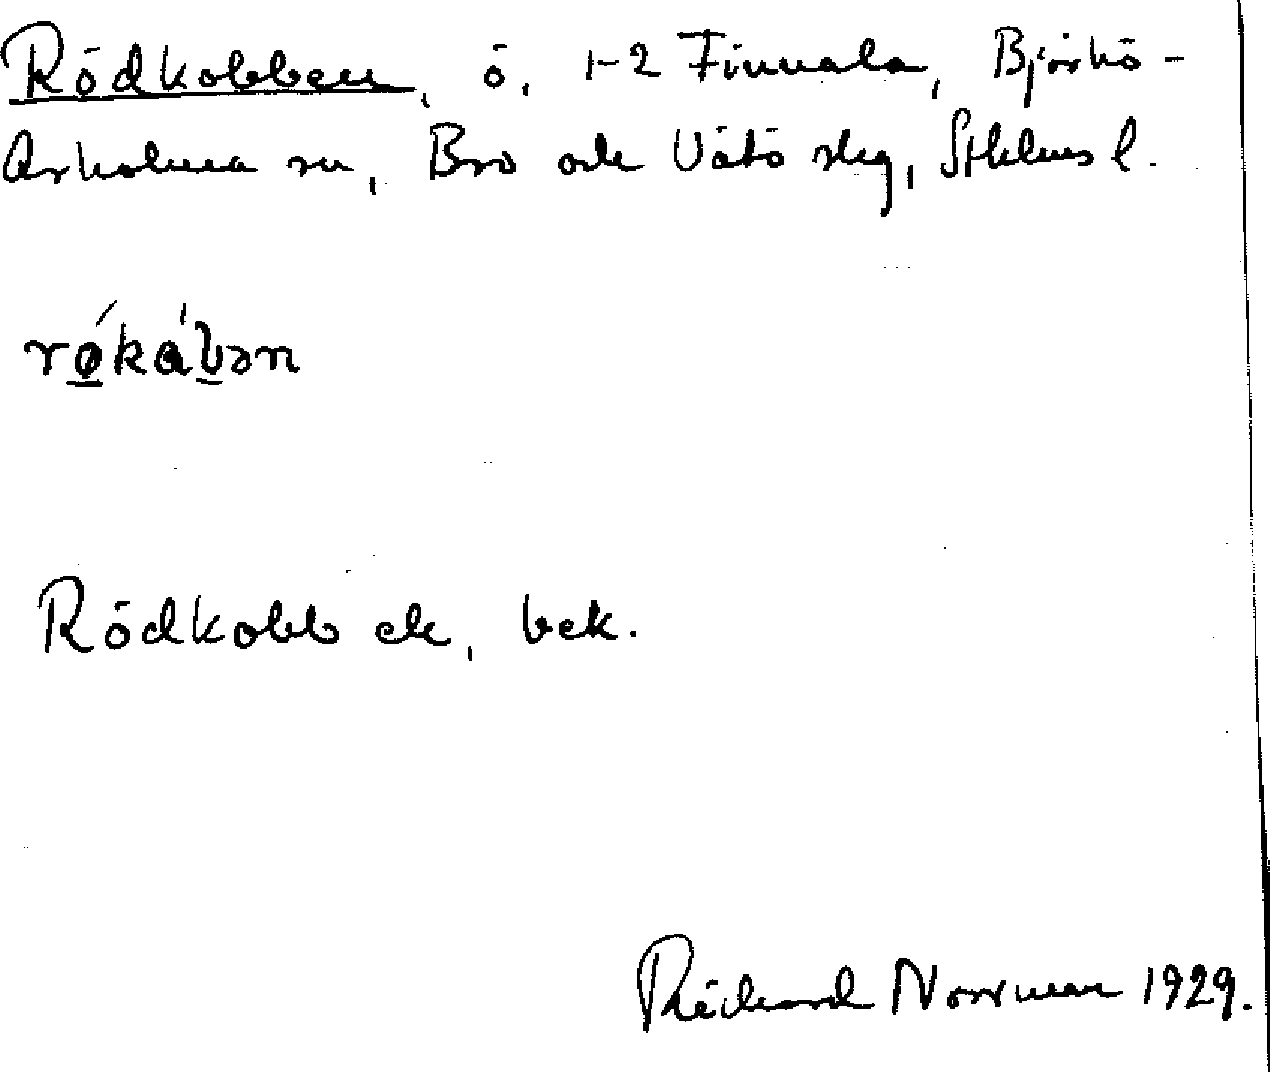 Rödkobben, ö, 1-2 Finnala, Björkö-
Arholma sn, Bro och Vätö skg, Sthlms l.
Rödkobb ek, bek.
Richard Norrman 1929.